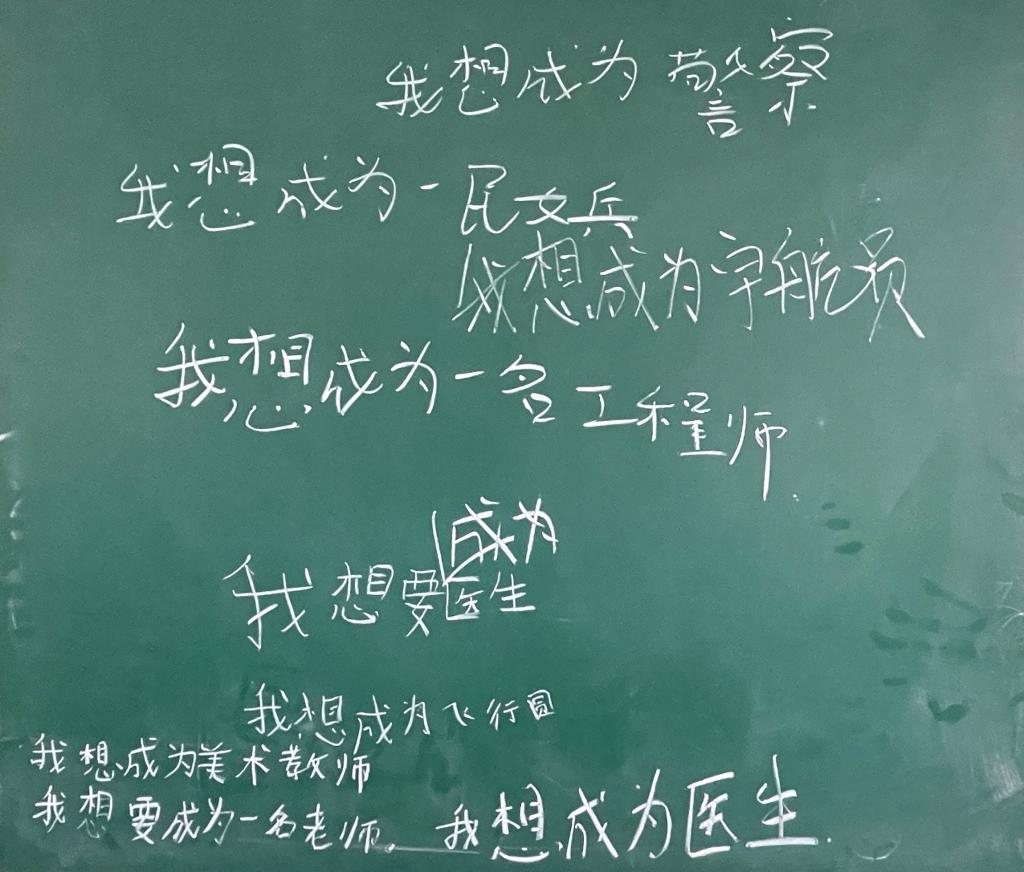 我想成为警察
我想成为一民女兵
我想成为宇航员
我想成为一名工程师.
我想要成为医生
我想成为飞行圆
我想成为美术教师
我想要成为一名老师。
我想成为医生.